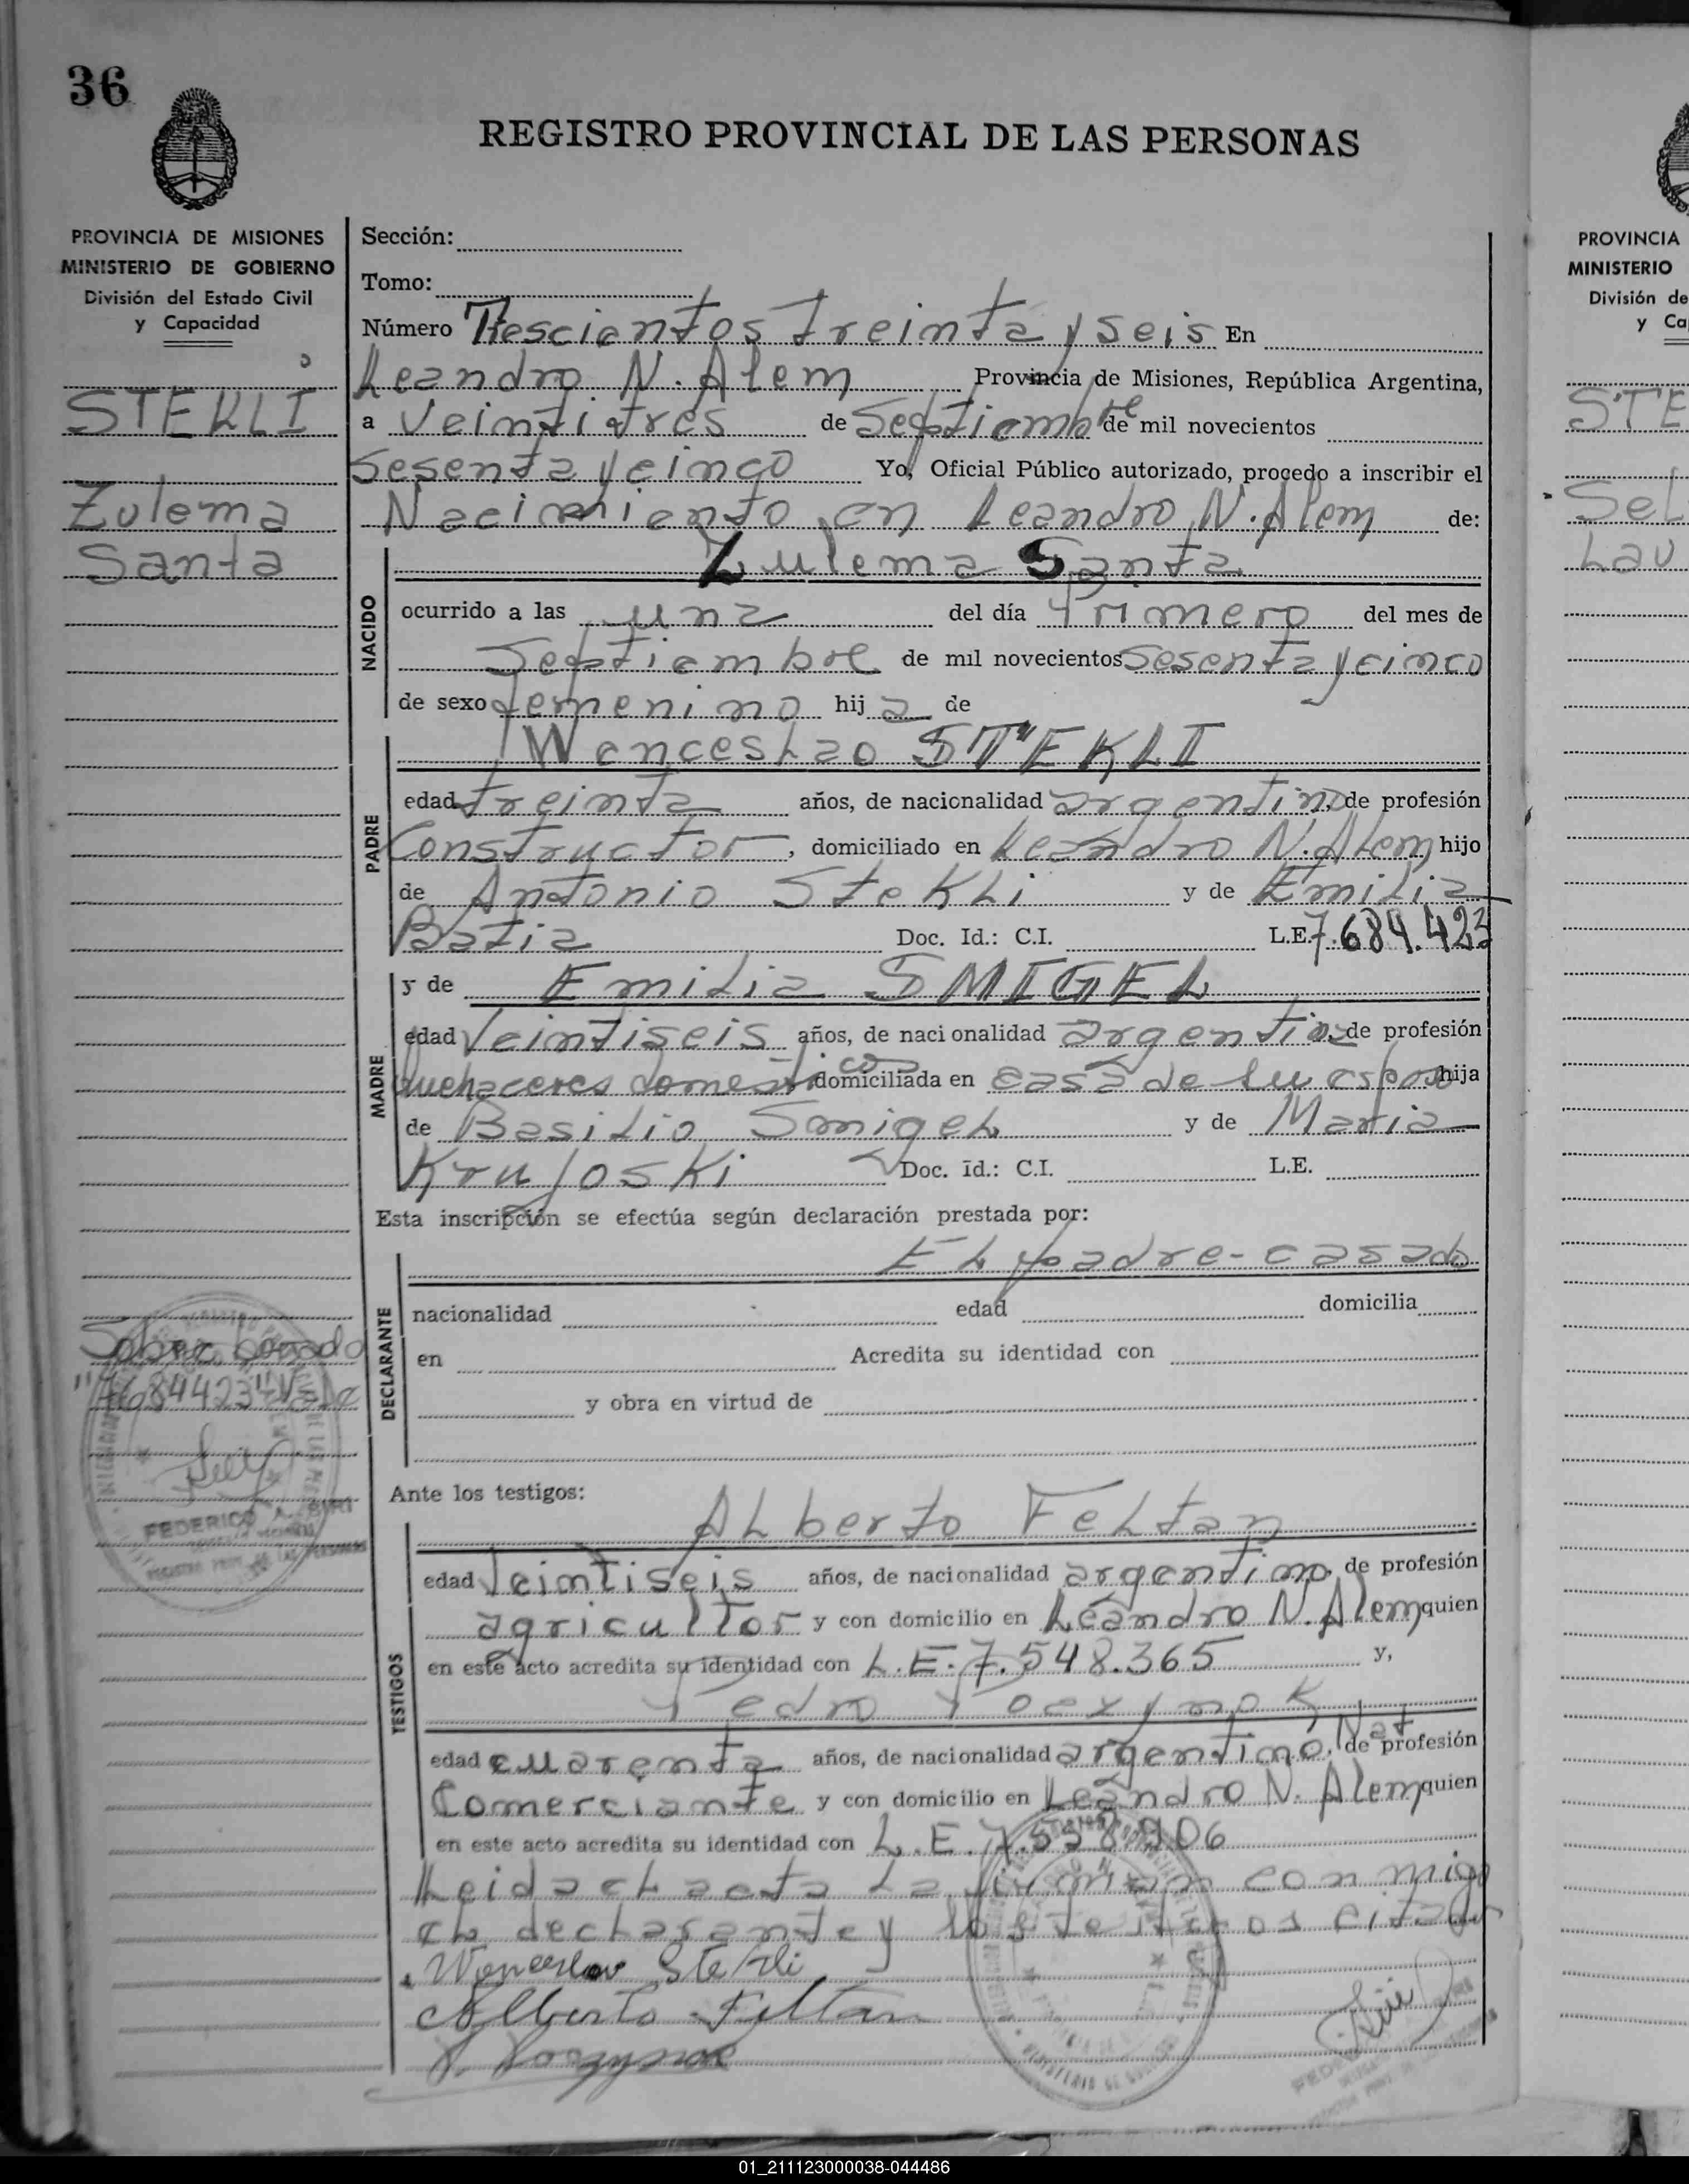 36
REGISTRO PROVINCIAL DE LAS PERSONAS
PROVINCIA DE MISIONES
MINISTERIO DE GOBIERNO
División del Estado Civil
y Capacidad
STEKLI
Zulema
Santa
Sección:
Tomo:
Número Trescientos treinta y seis En
Leandro N. Alem Provincia de Misiones, República Argentina,
a veintitres de Septiembre de mil novecientos
sesenta y cinco Yo, Oficial Público autorizado, procedo a inscribir el
Nacimiento en Leandro N. Alem de:
Zulema Santa
NACIDO
ocurrido a las una del día primero del mes de
Septiembre de mil novecientos sesenta y cinco
de sexo femenino hij a de
Wenceslao STEKLI
PADRE
edad treinta años, de nacionalidad argentino, de profesión
Constructor, domiciliado en Leandro N. Alem hijo
de Antonio Stekli y de Emilia
Batia Doc. Id.: C.I. L.E. 7.684.423
y de Emilia SMIGEL
MADRE
edad veintiseis años, de nacionalidad argentina de profesión
quehaceres domesticos domiciliada en casa de su esposo hija
de Basilio Smigel y de Maria
Krujoski Doc. id.: C.I. L.E.
Esta inscripción se efectúa según declaración prestada por:
El padre - casado
DECLARANTE
nacionalidad edad domicilia
en Acredita su identidad con
y obra en virtud de
Sobre borrado
"7684423" Vale
FEDERICO A.
Ante los testigos:
Alberto Feltan
TESTIGOS
edad veintiseis años, de nacionalidad argentino, de profesión
agricultor y con domicilio en Leandro N. Alem quien
en este acto acredita su identidad con L.E. 7.548.365 y,
Pedro Poczynok
edad cuarenta años, de nacionalidad argentino, Nat de profesión
Comerciante y con domicilio en Leandro N. Alem quien
en este acto acredita su identidad con L.E. 7.538.906
Leida el acta la firman conmigo
el declarante y los testigos citados
Wenceslao Stekli
Alberto Feltan
PROVINCIA
MINISTERIO
División de
y Ca
STE
Sel
Lau
01_211123000038-044486